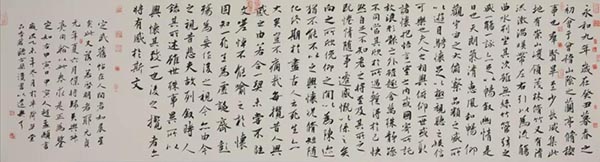 永和九年歲在癸丑暮春之
初會于會稽山陰之蘭亭脩禊
事也群賢畢至少長咸集此
地有崇山峻領茂林脩竹又有清
流激湍映帶左右引以為流觴
曲水列坐其次雖無絲竹管弦之
盛一觴一詠亦足以暢敘幽情是
日也天朗氣清惠風和暢仰
觀宇宙之大俯察品類之盛
所以遊目騁懷足以極視聽之娛信
可樂也夫人之相與俯仰一世或取
諸懷抱悟言一室之內或因寄所託
放浪形骸之外雖趣舍萬殊靜躁
不同當其欣於所遇暫得於己快
然自足不知老之將至及其所之
既惓情隨事遷感慨係之矣
向之所欣俛仰之間以為陳迹
猶不能不以之興懷況脩短隨
化終期於盡古人云死生亦
大矣豈不痛哉每攬昔人興
感之由若合一契未嘗不臨
文嗟悼不能喻之於懷
固知一死生為虛誕齊彭
殤為妄作後之視今亦由今
之視昔悲夫故列敘時人
錄其所述雖世殊事異所以
興懷其致一也後之攬者亦
將有感於斯文
定武舊帖在人間者如晨星
矣此又落落若啓明者耶元貞
元年夏六月